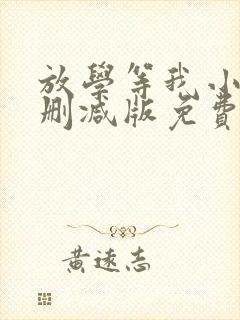 放學等我小
刪減版免費
黃遠志